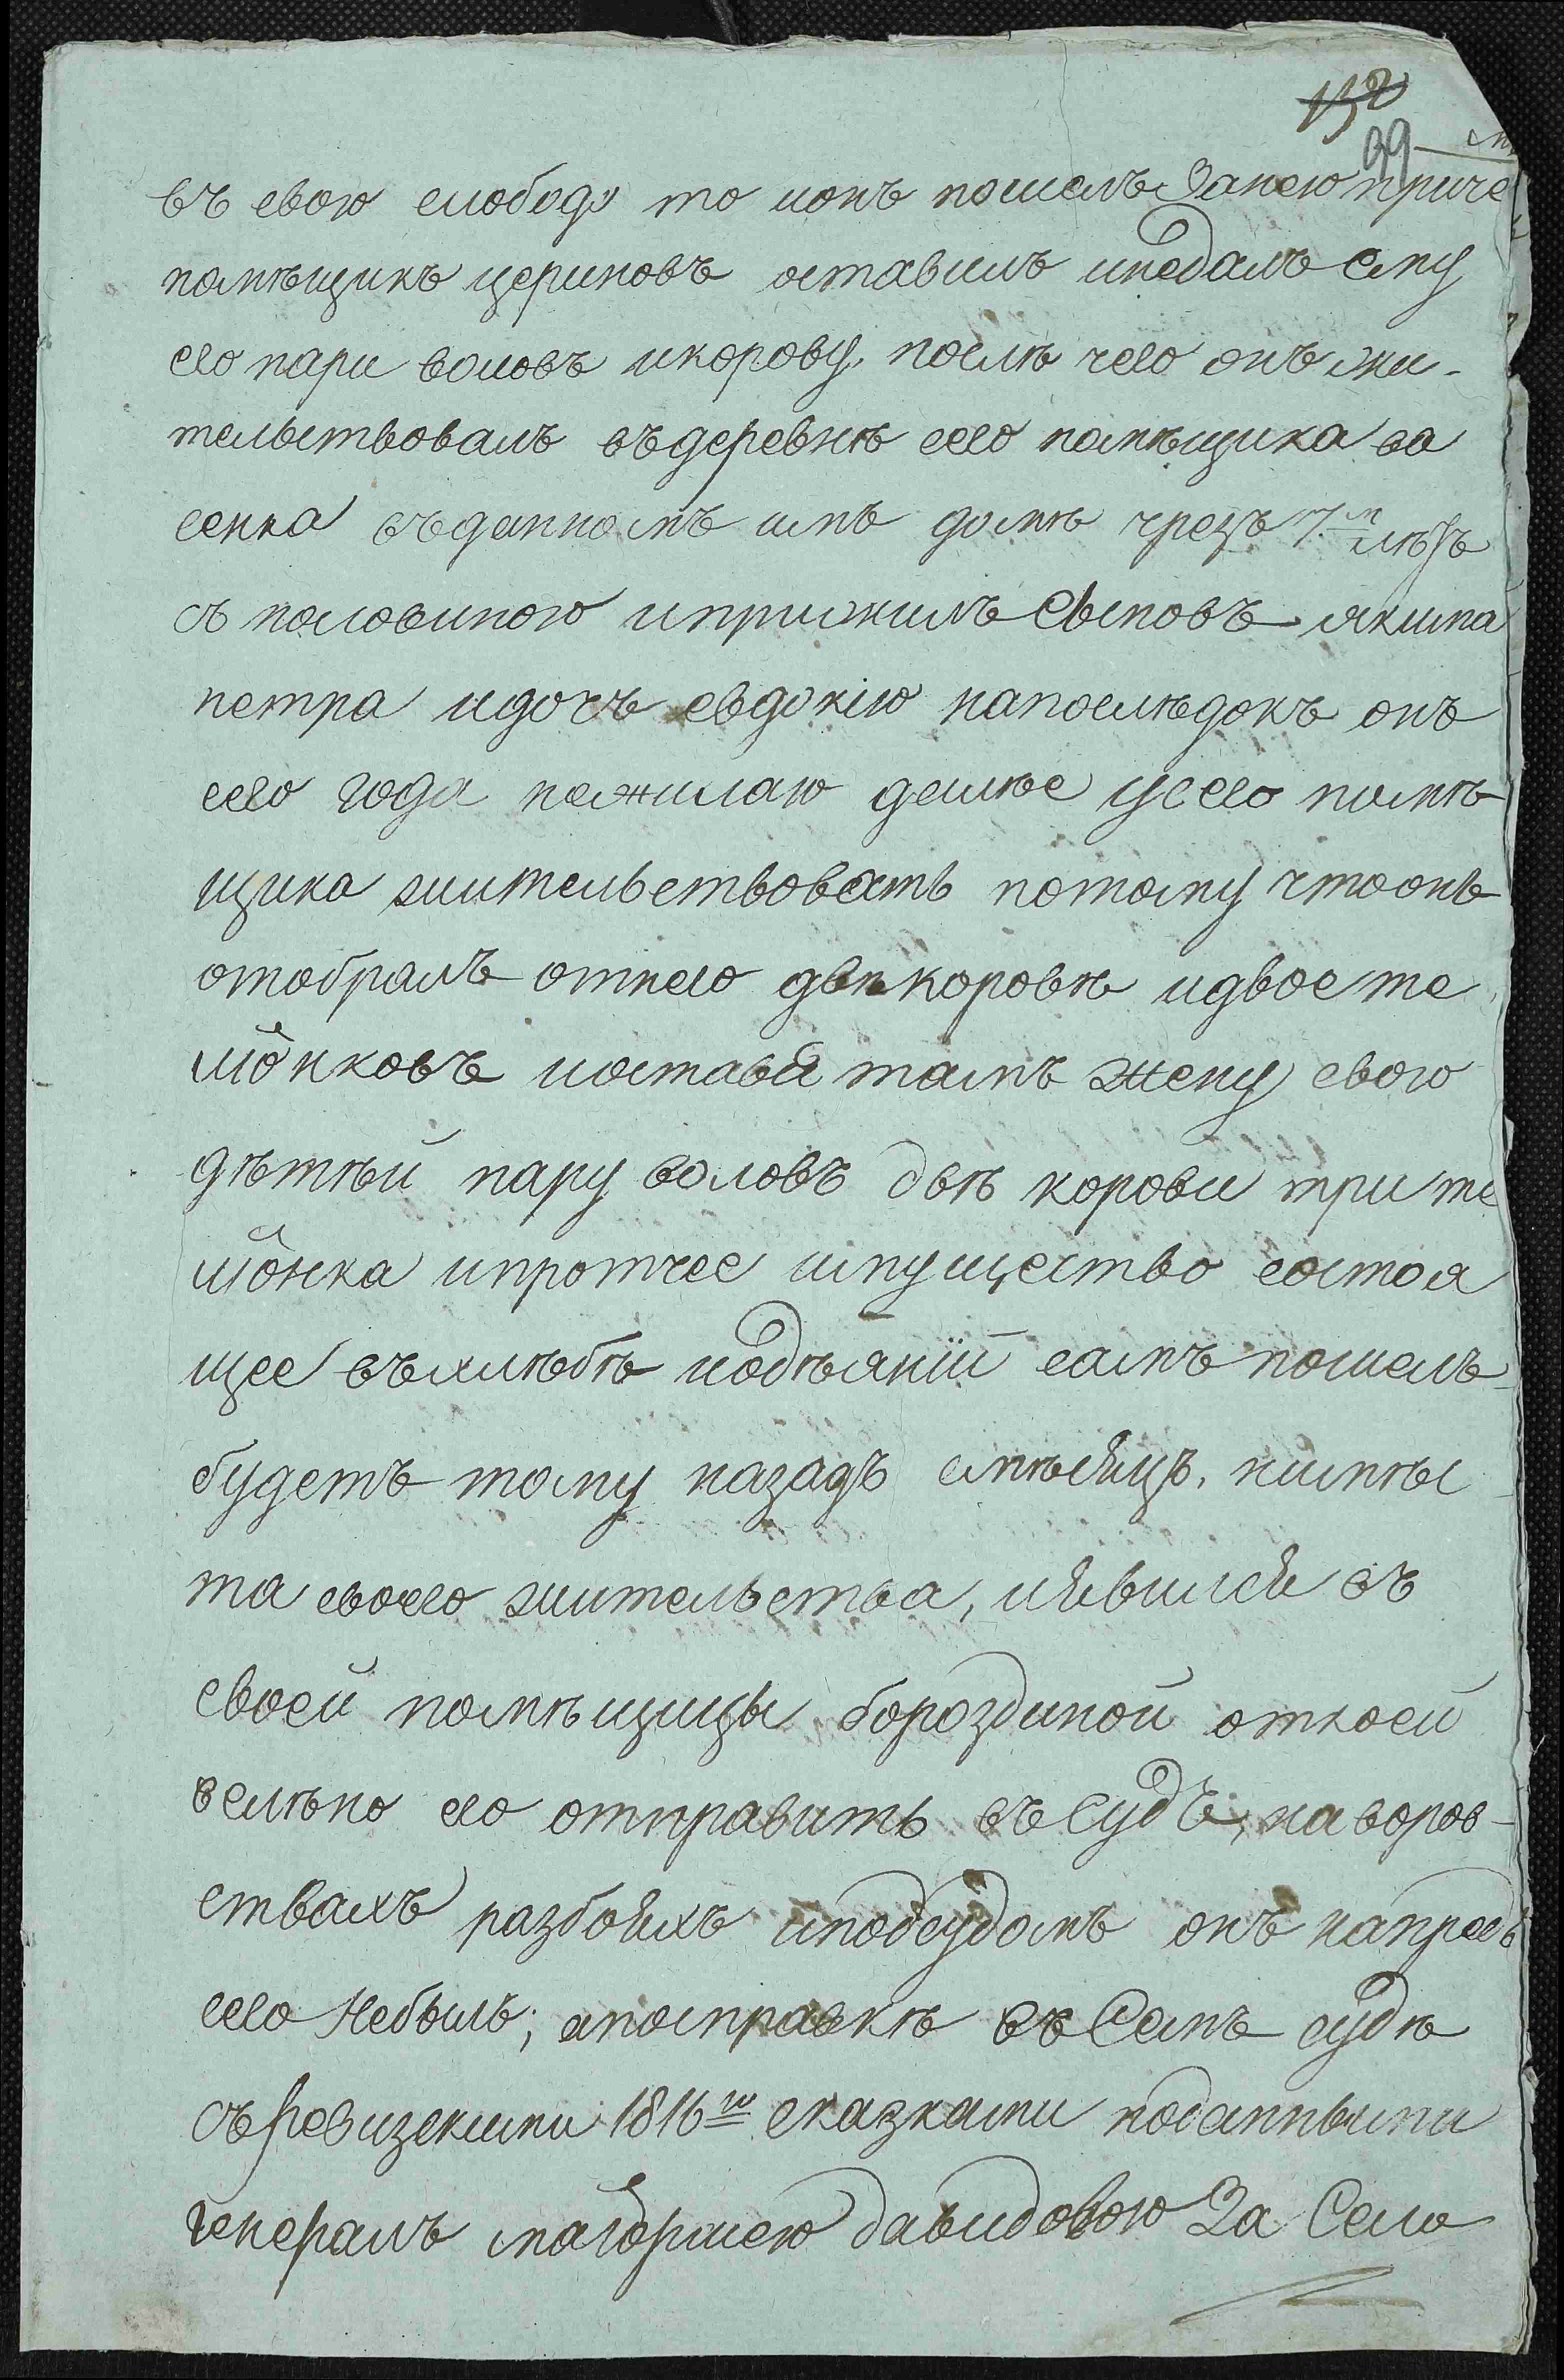 152
39
въ свою слободу то ионъ пошелъ Занею приче
помѣщикъ цериковъ оставилъ инедалъ ему
его пари воловъ икорову, послѣ чего онъ жи-
тельствовалъ въдеревнѣ сего помѣщика ва
сенка въданномъ имъ домѣ чрезъ 7.м лѣтъ
съ половиною иприжилъ Сыновъ якима
петра идочъ евдокію напослѣдокъ онъ
сего года нежилаю делѣе усего помѣ-
щика жительствовать потому чтоонъ
отобралъ отнего двѣкоровѣ идвое те
лiонковъ иоставя тамъ жену свою
дѣтѣй пару воловъ двѣ корови три те
лiонка ипротчее имущество состоя
щее въхлѣбѣ иодѣянiй самъ пошелъ
будетъ тому назадъ смѣсяцъ, изъмѣс
та своего жительства, иявился въ
своей помѣщицы бороздиной откоей
велѣно его отправить въСудъ, наворов-
ствахъ разбояхъ иподсудомъ онъ напредь
сего Небылъ; апосправкѣ въСемъ судѣ
съревизскими 1816го сказками поданными
генералъ маiоршею давидовою За Село